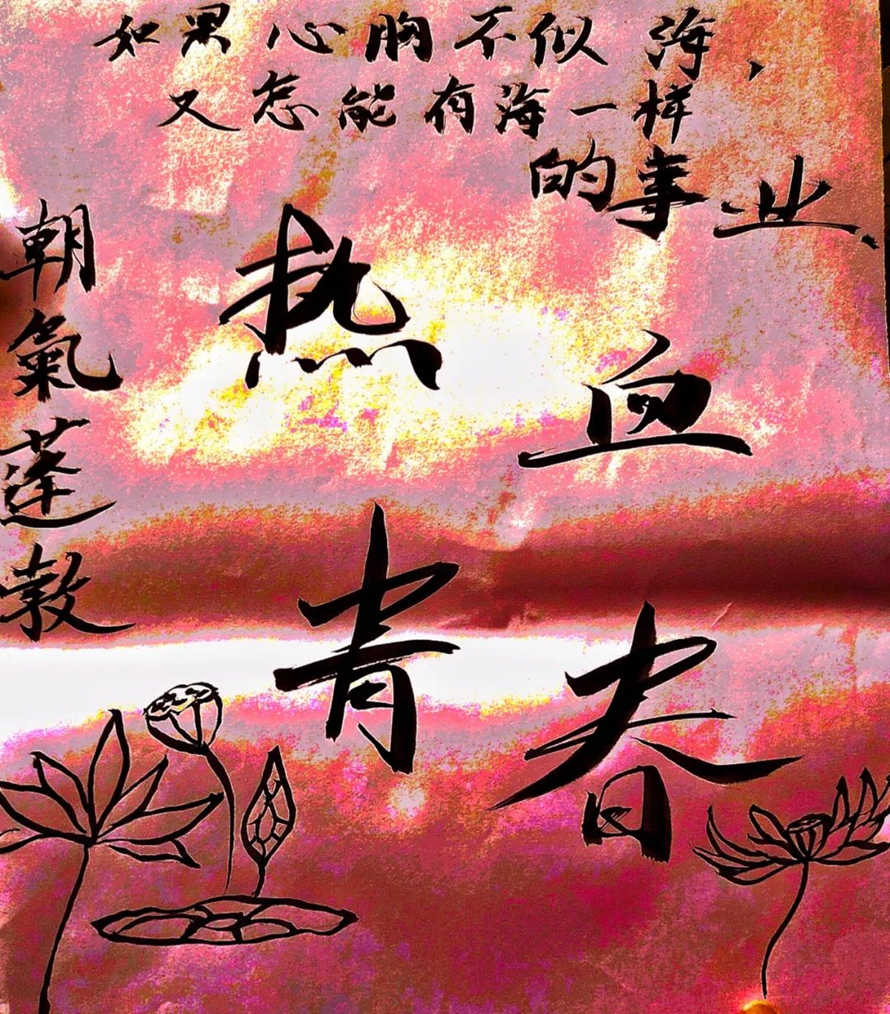 如果心胸不似海，
又怎能有海一样
的事业、
朝氣蓬敦
热血
青春